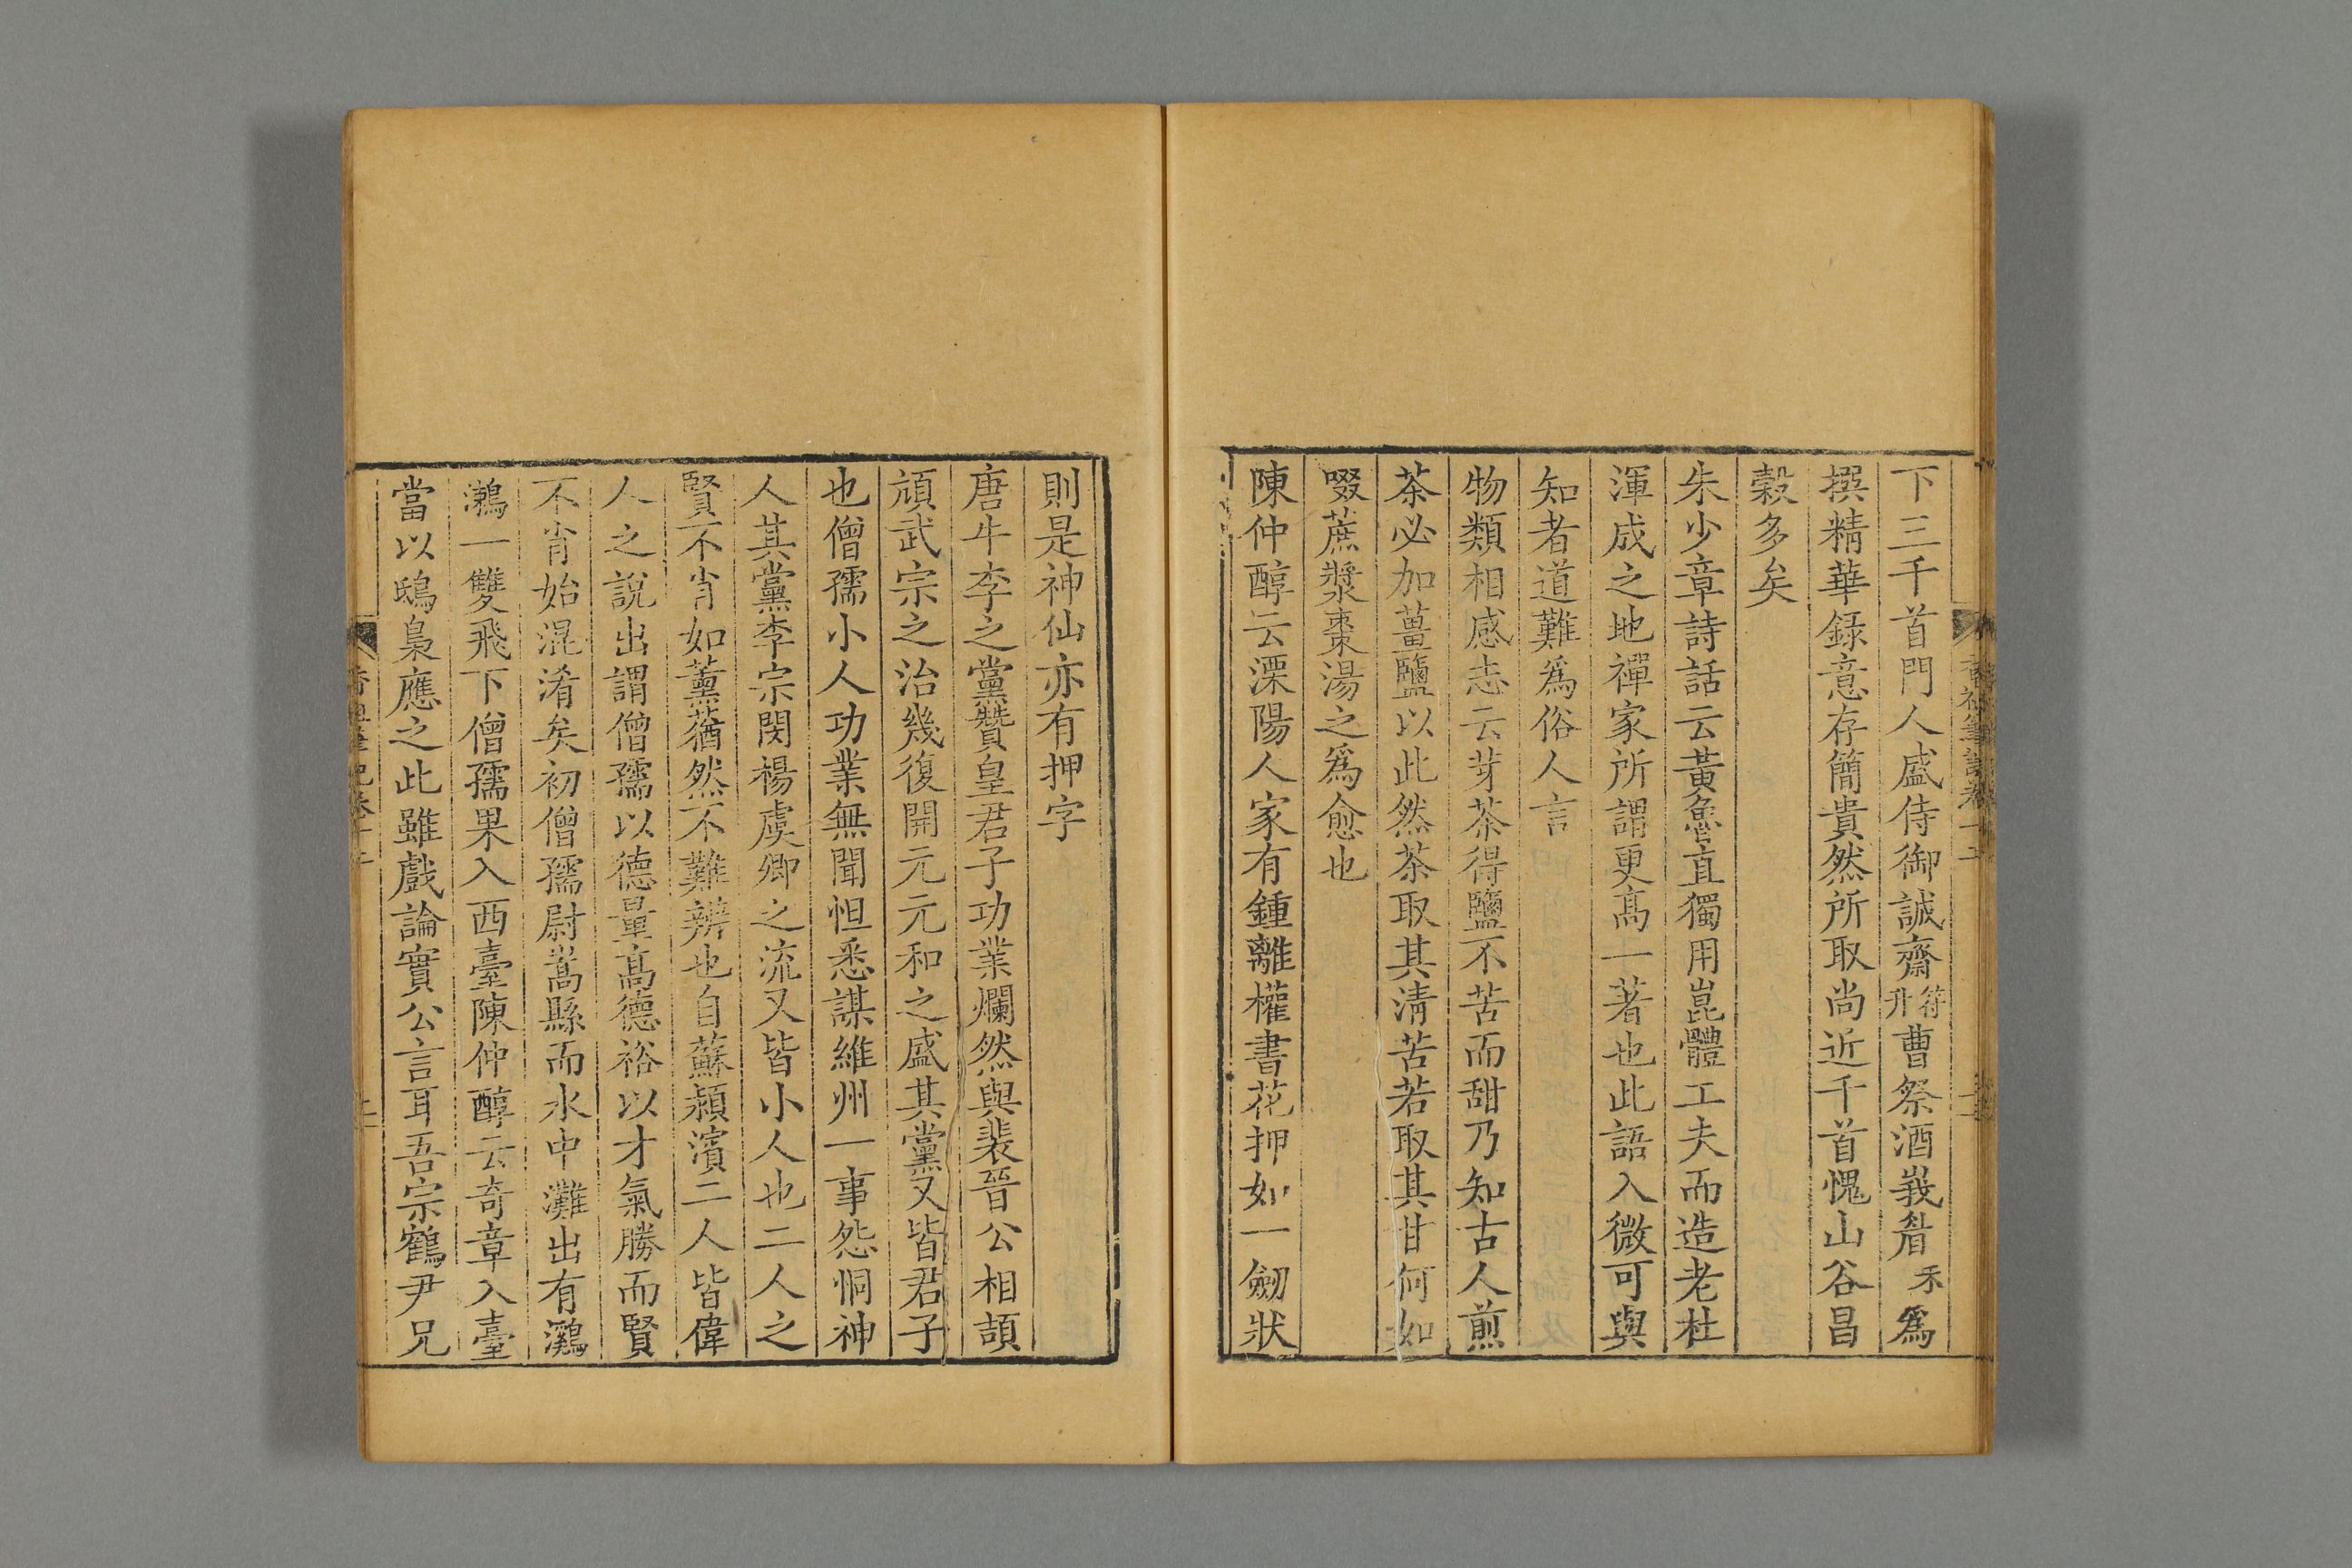 下三千首門人盛侍御誠齋符升曹祭酒峩嵋禾爲
撰精華録意存簡貴然所取尚近千首愧山谷昌
穀多矣
朱少章詩話云黃魯直獨用崑體工夫而造老杜
渾成之地禪家所謂更高一著也此語入微可與
知者道難爲俗人言
物類相感志云芽茶得鹽不苦而甜乃知古人煎
茶必加薑鹽以此然茶取其清苦若取其甘何如
啜蔗漿棗湯之爲愈也
陳仲醇云溧陽人家有鍾離權書花押如一劒狀
則是神仙亦有押字
唐牛李之黨贊皇君子功業爛然與裴晉公相頡
頏武宗之治幾復開元元和之盛其黨又皆君子
也僧孺小人功業無聞怛悉謀維州一事怨恫神
人其黨李宗閔楊虞卿之流又皆小人也二人之
賢不肖如薰蕕然不難辨也自蘇潁濱二人皆偉
人之說出謂僧孺以德量高德裕以才氣勝而賢
不肖始混淆矣初僧孺尉嵩縣而水中灘出有鸂
鶒一雙飛下僧孺果入西臺陳仲醇云奇章入臺
當以鴟梟應之此雖戲論實公言耳吾宗鶴尹兄